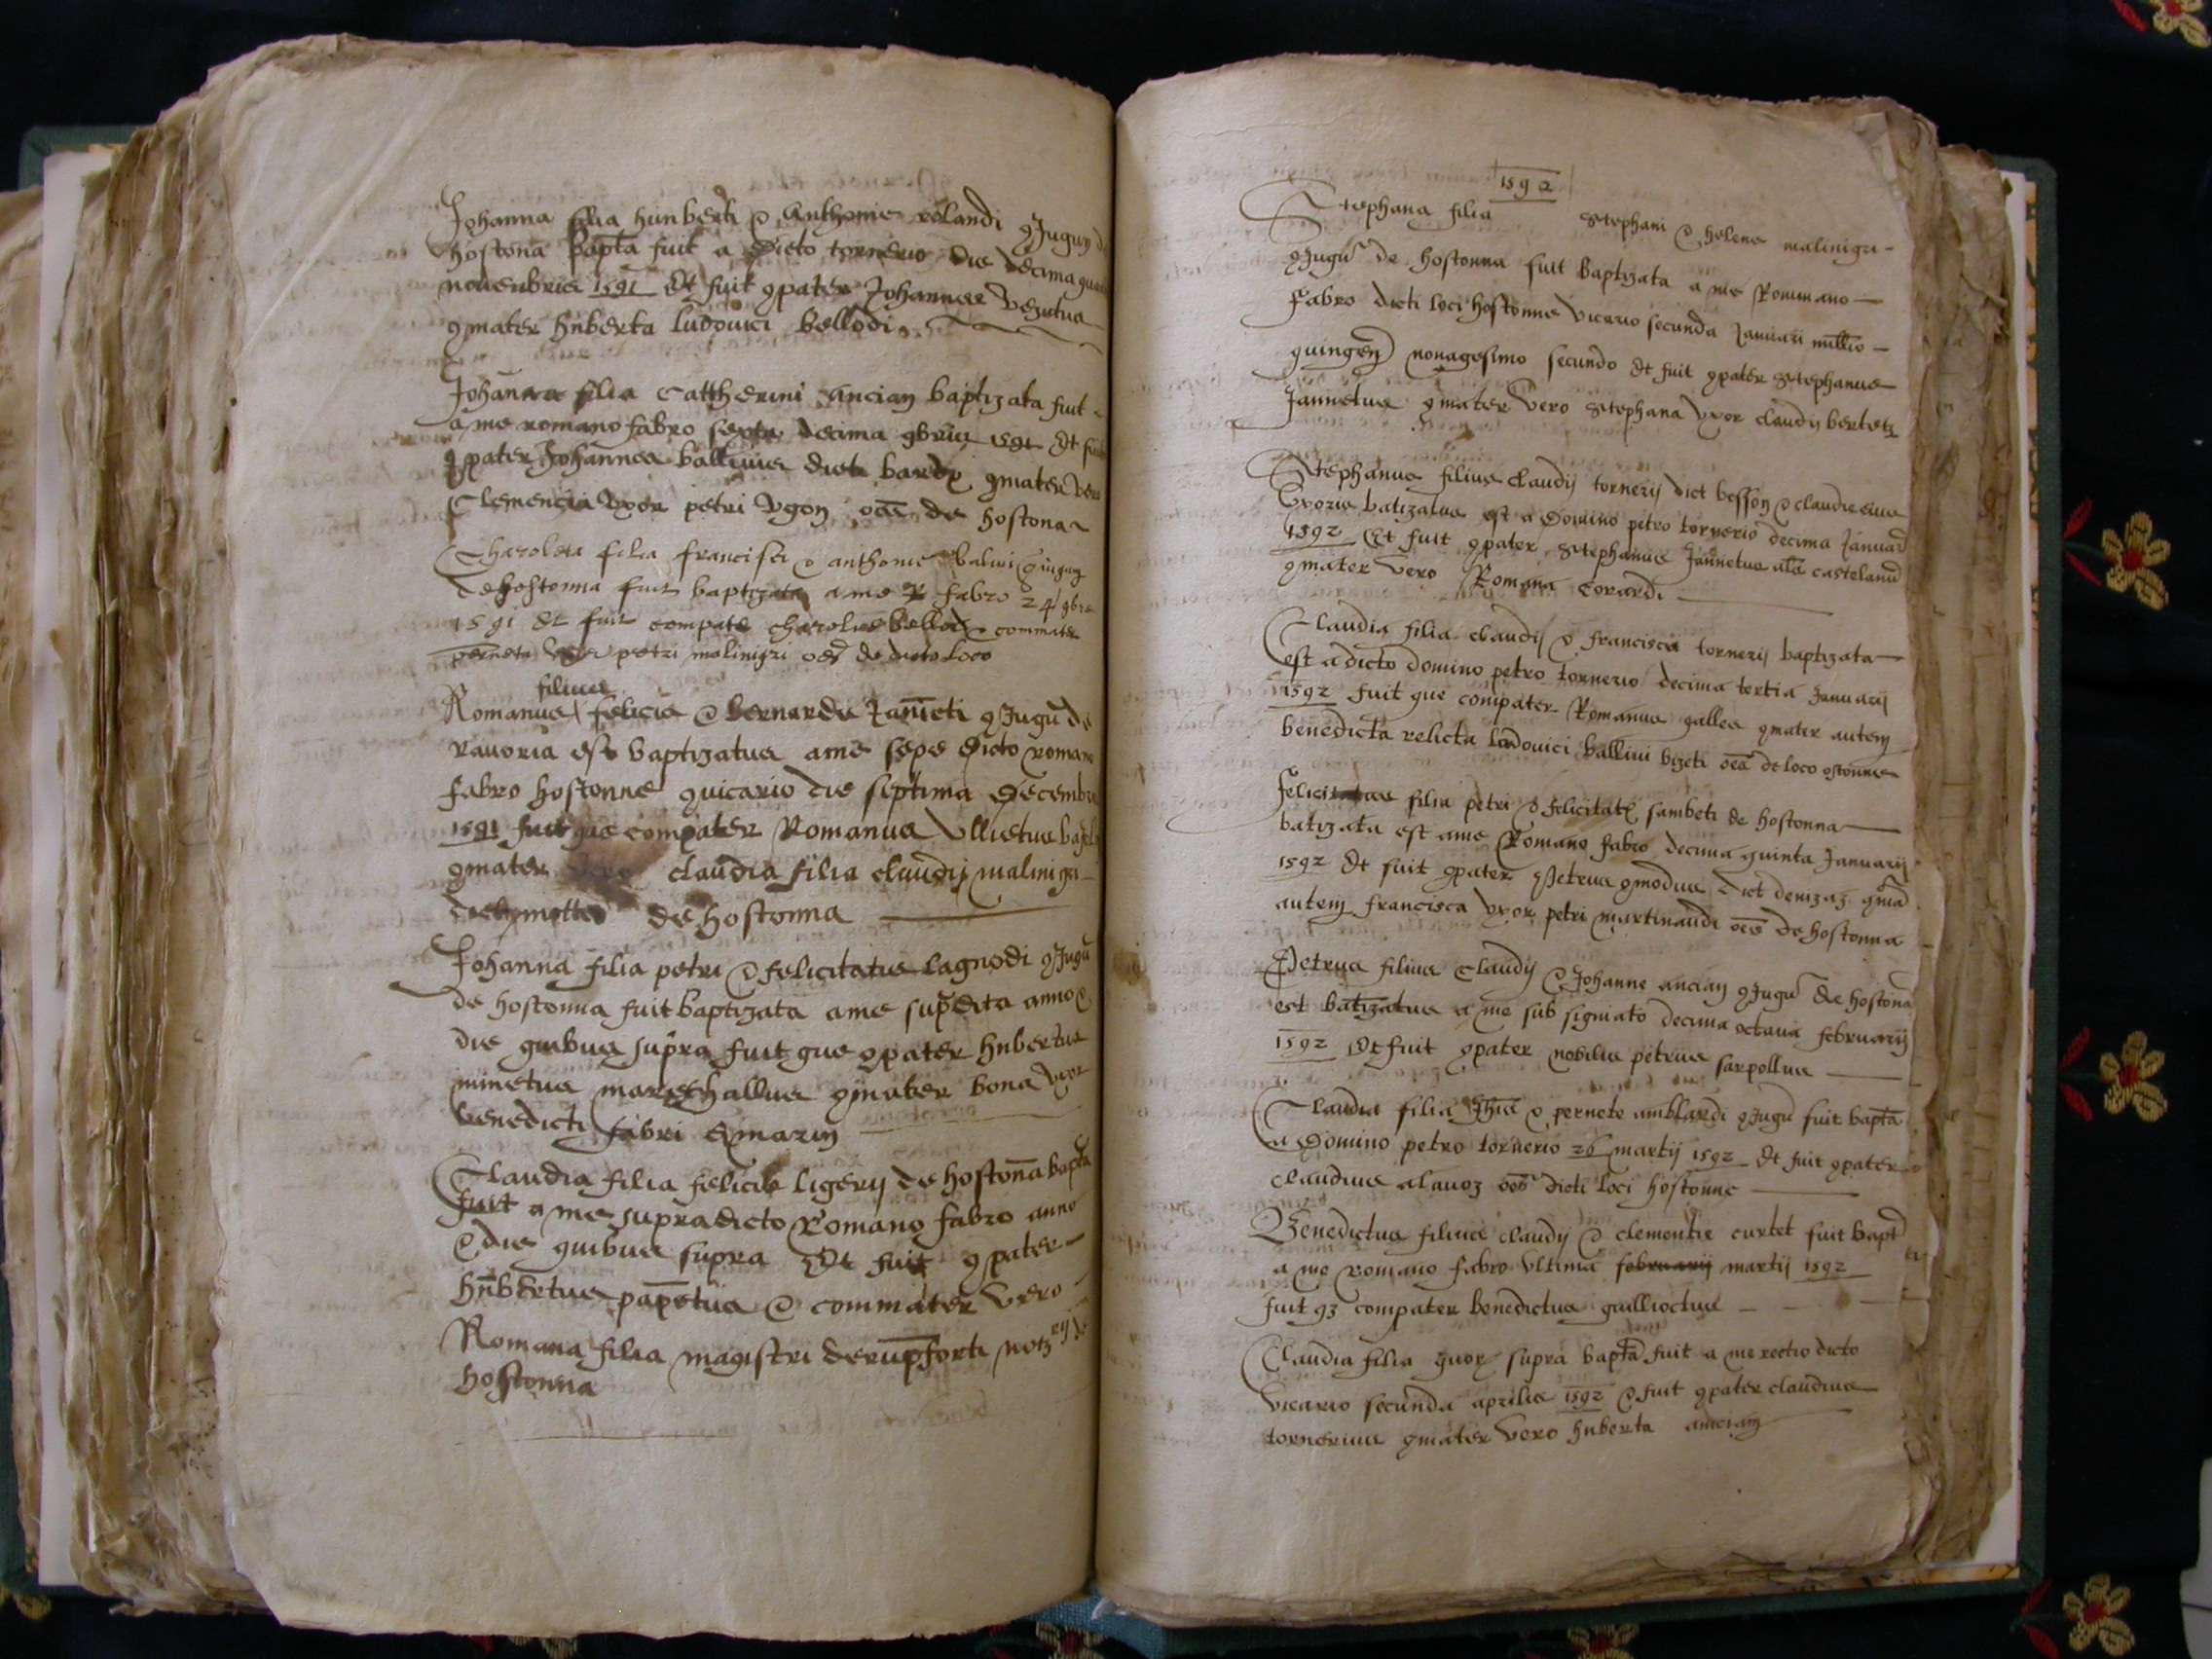 Johanna filia humberti & Anthonie rolandi conjugum de
hostona bapta fuit a dicto tornerio die decima quarta
novenbris 1591 Et fuit compater Johannes vezutus
comater huberta ludovici bellodi
Johanna filia cattherini ancian baptizata fuit
a me romano fabro sexta decima 9bris 1591 Et fuit
compater Johannes ballinus dicti comater vero
Clemencia uxor petri ugon oes de hostona
Charoleta filia francisci & anthonie balini conjugum
de hostonna fuit baptizata a me R fabro 24 9bris
1591 et fuit compater charolus bellod commater
perneta uxor petri malinigri oes de dicto loco
filius
Romanus felicis & bernarde Janneti conjugum de
ravoria est baptizatus a me sepe dicto romano
fabro hostonne quicario die septima decembris
1591 fuit que compater Romanus Ullietus
comater vero claudia filia claudij malinigri
dict mottet de hostonna
Johanna filia petri & felicitatis lagnodi conjugum
de hostonna fuit baptizata a me supradicta anno &
die quibus supra fuit que compater hubertus
minetus mareschallus comater bona uxor
benedicti fabri
Claudia filia felicis ligerij de hostonna bapta
fuit a me supradicto Romano fabro anno
& die quibus supra Et fuit compater
hubertus papetus & commater vero
Romana filia magistri de rupforti notarij de
hostonna
1592
Stephana filia Stephani & helene malinigri
conjugum de hostonna fuit baptizata a me Rommano
Fabro dicti loci hostonne vicario secunda Januarii millio
quingen nonagesimo secundo Et fuit compater Stephanus
Jannetus comater vero Stephana uxor claudij bertetz
Stephanus filius claudij tornerij dict besson & claudie eius
uxoris batizatus est a domino petro tornerio decima Januarii
1592 Et fuit compater Stephanus Jannetus als castelanus
comater vero Romana Corardi
Claudia filia claudij & francisca tornerij baptizata
est a dicto domino petro tornerio decima tertia Januarij
1592 fuit que compater Romanus galles comater autem
benedicta relicta ludovici ballini bizeti oes de loco ostonne
Felicitas filia petri & felicitatis sambeti de hostonna
batizata est a me Romano fabro decima quinta Januarij
1592 Et fuit compater Petrus comodus dict denizaz comater
autem francisca uxor petri martinaudi oes de hostonna
Petrus filius Claudij & Johanne ancian conjugum de hostona
est batizatus a me sub signato decima octava februarij
1592 Et fuit compater nobilis petrus sarpollus
Claudia filia & pernete amblardi conjugum fuit bapta
a Domino petro tornerio 26 martij 1592 Et fuit compater
claudius alavoz oes dicti loci hostonne
Benedictus filius claudij & clementie curtet fuit bapt
a me romano fabro ultima februarij martij 1592
fuit q3 compater benedictus guillioctus
Claudia filia quor supra bapta fuit a me recto dicto
vicario secunda aprilis 1592 & fuit compater claudius
tornerius comater vero huberta ancian